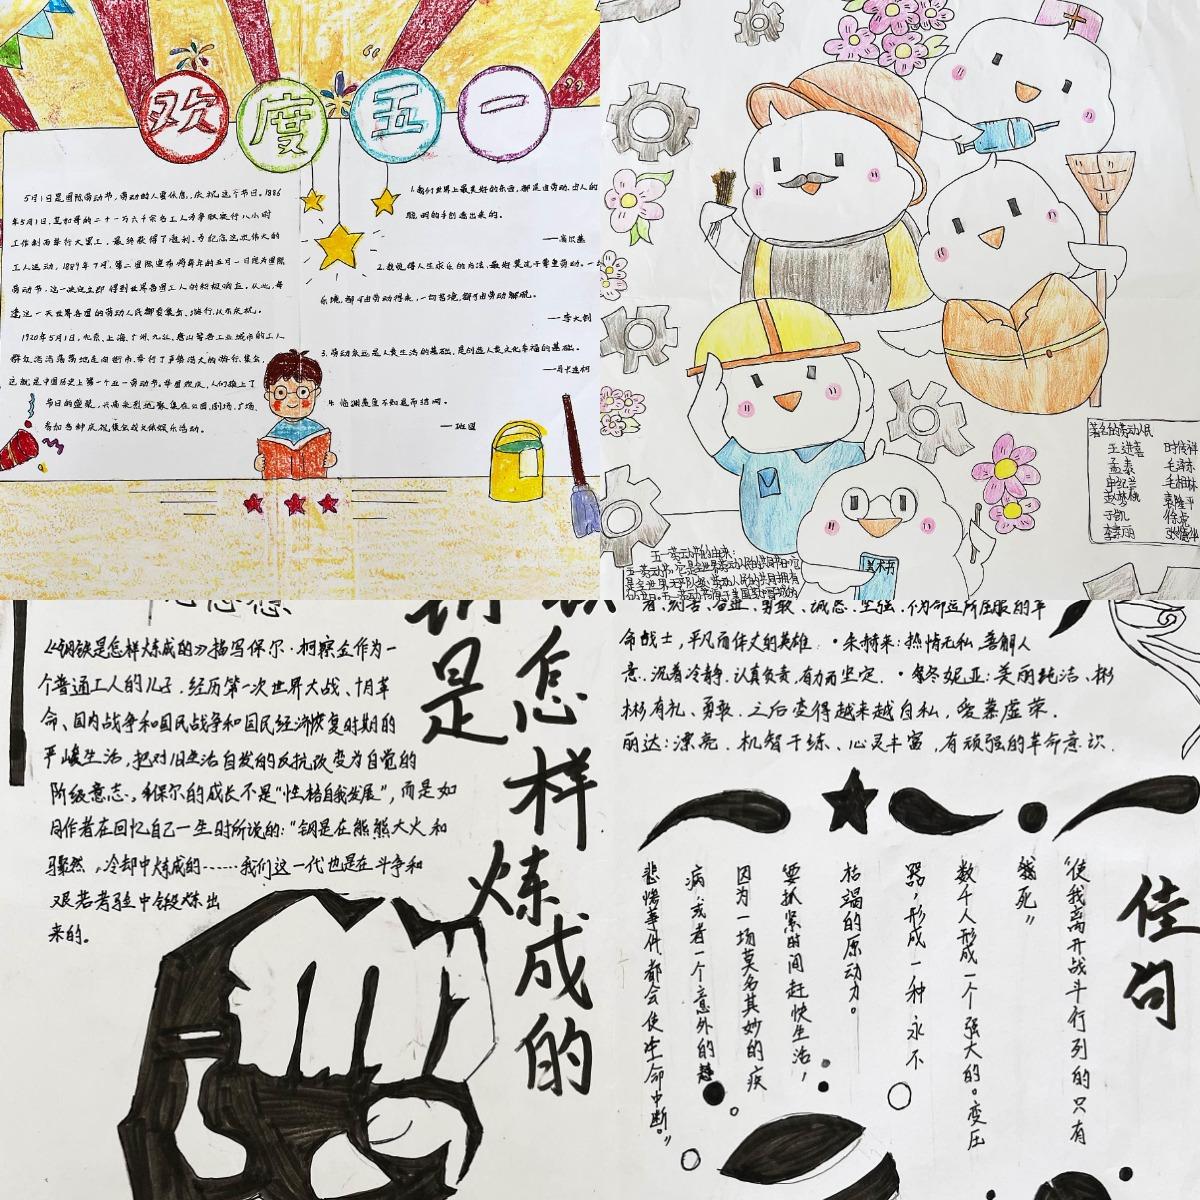 欢度五一
5月1日是国际劳动节,劳动的人要休息,庆祝这个节日。1886
年5月1日,芝加哥的二十一万六千余名工人为争取实行八小时
工作制而举行大罢工,最终获得了胜利。为纪念这次伟大的
工人运动,1889年7月,第二国际宣布将每年的五月一日定为国际
劳动节。这一决定立即得到世界各国工人的积极响应。从此,每
逢这一天世界各国的劳动人民都要集会、游行,以示庆祝。
1920年5月1日,北京,上海,广州,九江,唐山等各工业城市的工人
群众浩浩荡荡地走向街市,举行了声势浩大的游行、集会,
这就是中国历史上第一个五一劳动节。举国欢庆,人们换上了
节日的盛装,兴高采烈地聚集在公园,剧场,广场,
参加各种庆祝集会或文体娱乐活动。
1.我们世界上最美好的东西,都是由劳动,由人的
聪明的手创造出来的。
——高尔基
2.我觉得人生求乐的方法,最好莫过于尊重劳动。一
乐境,都可由劳动得来,一切苦境,都可由劳动解脱。
——李大钊
3.劳动永远是人类生活的基础,是创造人类文化幸福的基础。
——马卡连柯
4.临渊羡鱼不如退而结网。
——班固
著名的劳动人民
王进喜 时传祥
孟泰 毛泽东
申纪兰 毛相林
赵梦桃 袁隆平
于凯 徐虎
李素丽
美术书
五一劳动节的由来:
《钢铁是怎样炼成的》描写保尔·柯察金作为一
个普通工人的儿子,经历第一次世界大战、十月革
命、国内战争和国民战争和国民经济恢复时期的
严峻生活,把对旧生活自发的反抗改变为自觉的
阶级意志,保尔的成长不是“性格自我发展”,而是如
同作者在回忆自己一生时所说的:“钢是在熊熊大火和
骤然,冷却中炼成的……我们这一代也是在斗争和
艰苦考验中锻炼出
来的。
是怎样炼成的
者,刻苦、奋进、勇敢、诚恳、坚强、不为命运所屈服的革
命战士,平凡而伟大的英雄。·朱赫来:热情无私,善解人
意,沉着冷静,认真负责,有力而坚定。·冬妮亚:美丽纯洁、彬
彬有礼、勇敢。之后变得越来越自私,爱慕虚荣。
丽达:漂亮、机智干练、心灵丰富,有顽强的革命意识。
佳句
“使我离开战斗行列的只有
我死”
数千人形成一个强大的。变压
器,形成一种永不
枯竭的原动力。
要抓紧时间赶快生活,
因为一场莫名其妙的疾
病,或者一个意外的
悲惨事件都会使生命中断。”